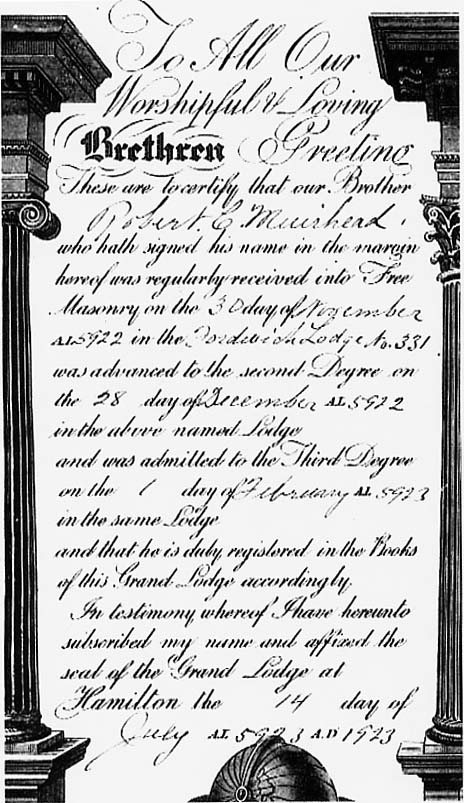 To All Our
Worshipful & Loving
Brethren Greeting
These are to certify that our Brother
Robert E Muirhead
who hath signed his name in the margin
hereof was regularly received into Free
Masonry on the 30 day of November
A.L 5922 in the Fordwich Lodge No. 331
was advanced to the second Degree on
the 28 day of December A.L 5922
in the above named Lodge
and was admitted to the Third Degree
on the 1 day of February A.L 5923
in the same Lodge
and that he is duly registered in the Books
of this Grand Lodge accordingly.
In testimony whereof I have hereunto
subscribed my name and affixed the
seal of the Grand Lodge at
Hamilton the 14 day of
July A.L 5923 A.D 1923